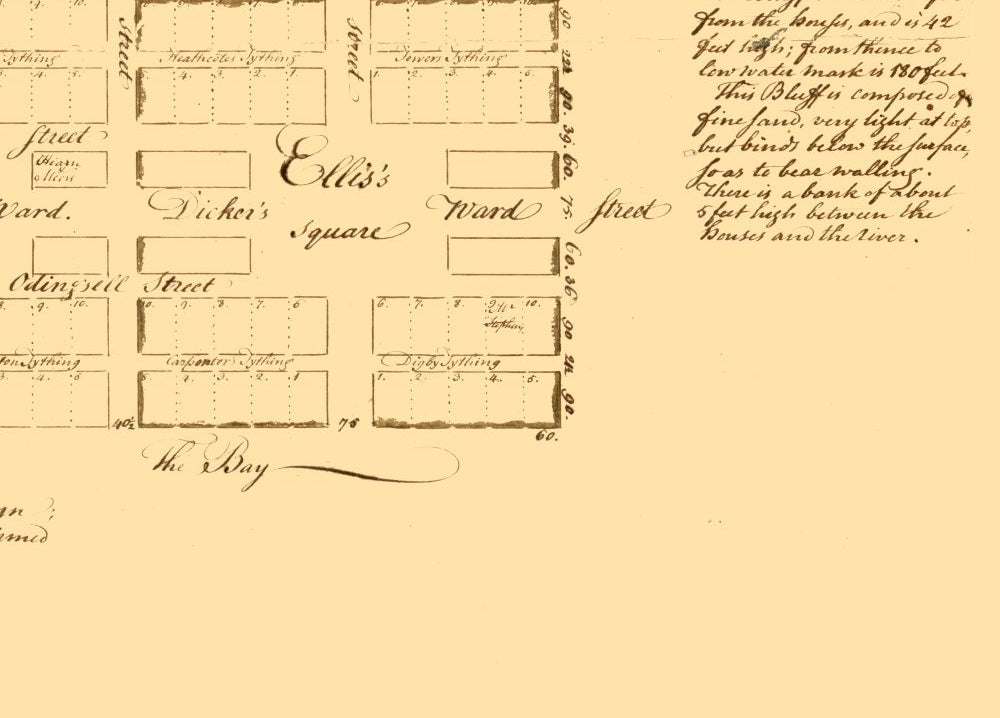 Street
Street
Tything
Heathcotes Tything
Towers Tything
3. 4. 5.
5. 4. 3. 2. 1.
1. 2. 3. 4. 5.
Street
Ellis's
Ward.
Dicker's
Ward
Street
Square
Odingsell Street
8. 9. 10.
10. 9. 8. 7. 6
6. 7. 8. 9. 10.
Stephens
Tything
Carpenters Tything
Digby Tything
3. 4. 5.
5. 4. 3. 2. 1
1. 2. 3. 4. 5.
90 22½ 90. 39. 60. 75 60. 36 90 90.
40½ 75 60.
The Bay
from the houses, and is 42
feet high; from thence to
low water mark is 180 feet.
This Bluff is composed of
fine sand, very light at top,
but binds below the surface,
so as to bear walling.
There is a bank of about
5 feet high between the
houses and the river.